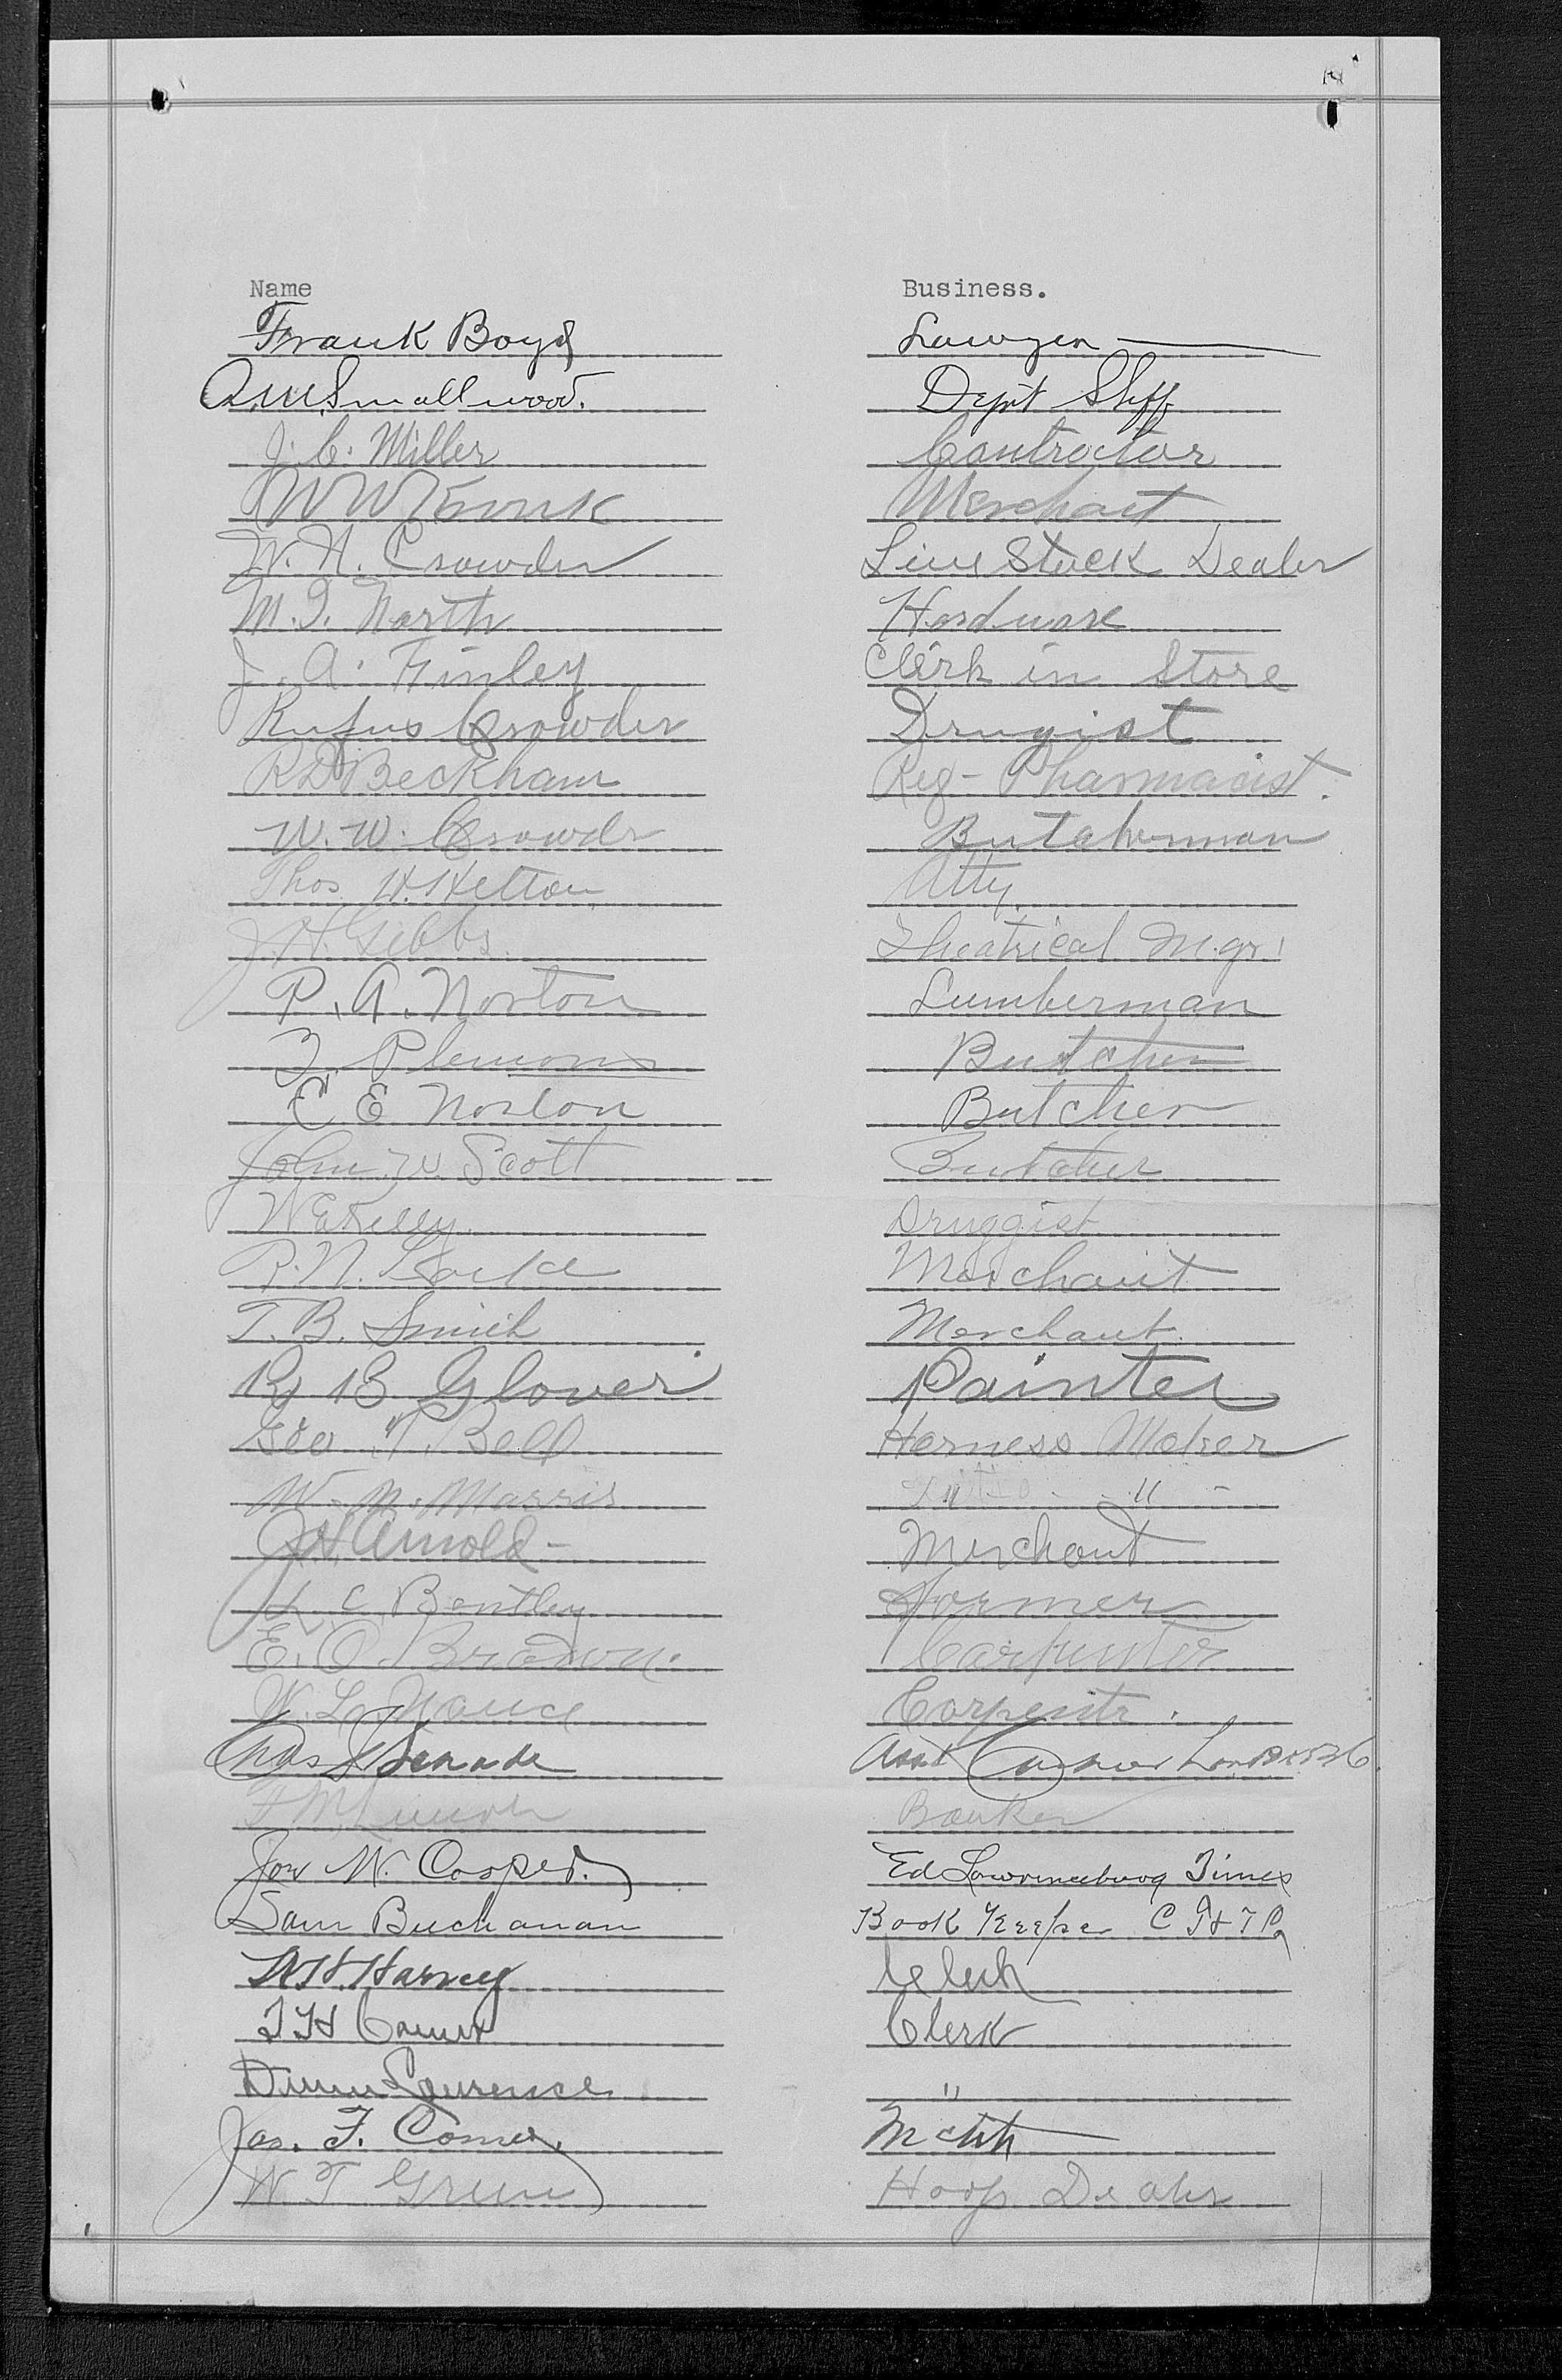 Name Business.
Frank Boyd Lawyer
Q.M. Smallwood. Dept Shff
J. C. Miller Contractor
W W Merchant
W. H. Crowder Live Stock Dealer
M. I. North Hardware
J. A. Finley Clerk in Store
Rufus Crowder Drugist
R D Beckham Reg- Pharmacist.
W. W. Crowdr Butcherman
Thos. H. Helton Atty.
J. H. Gibbs. Theatrical M.gr.
P. A. Norton Lumberman
Z. Plemons Butcher
C E Norton Butcher
John W Scott Butcher
W E Kelly Druggist
R. N. Merchant
T. B. Smith Merchant
R B Glover Painter
Geo T. Bell Harness Maker
W. M. Marris " "
J H Arnold - Merchant
L C Bentley Farmer
E. O. Brason. Carpenter
W. L. Nance Carpentr.
Chas Asst
F M Banker
Jos W. Cooper. Ed Lawrenceburg Times
Sam Buchanan Book Keeper
A H Harvey Clerk
T H Clerk
Laurence "
Jas. F. Comer.
W. T. Green Hoop Dealer